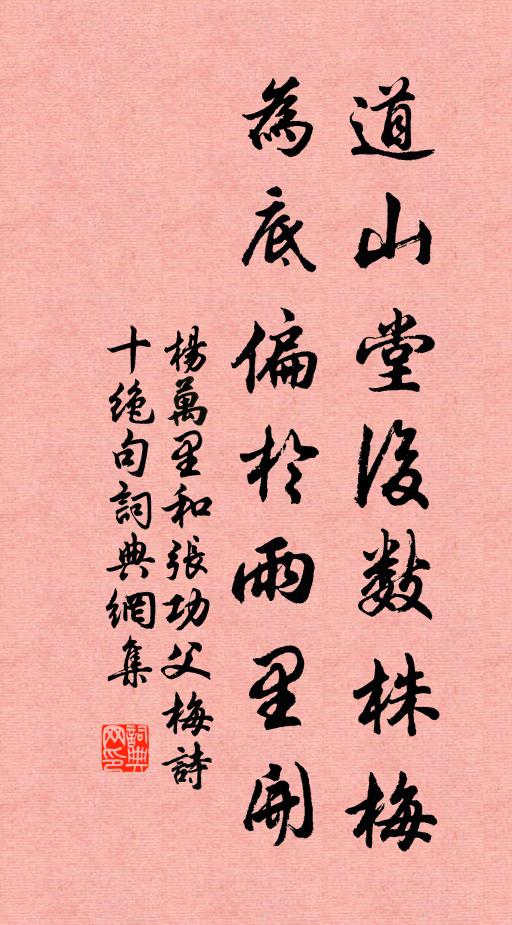 道山堂後數株梅
為底偏於雨里開
楊萬里和張功父梅詩
十絶句詞典網集
詞典
网印